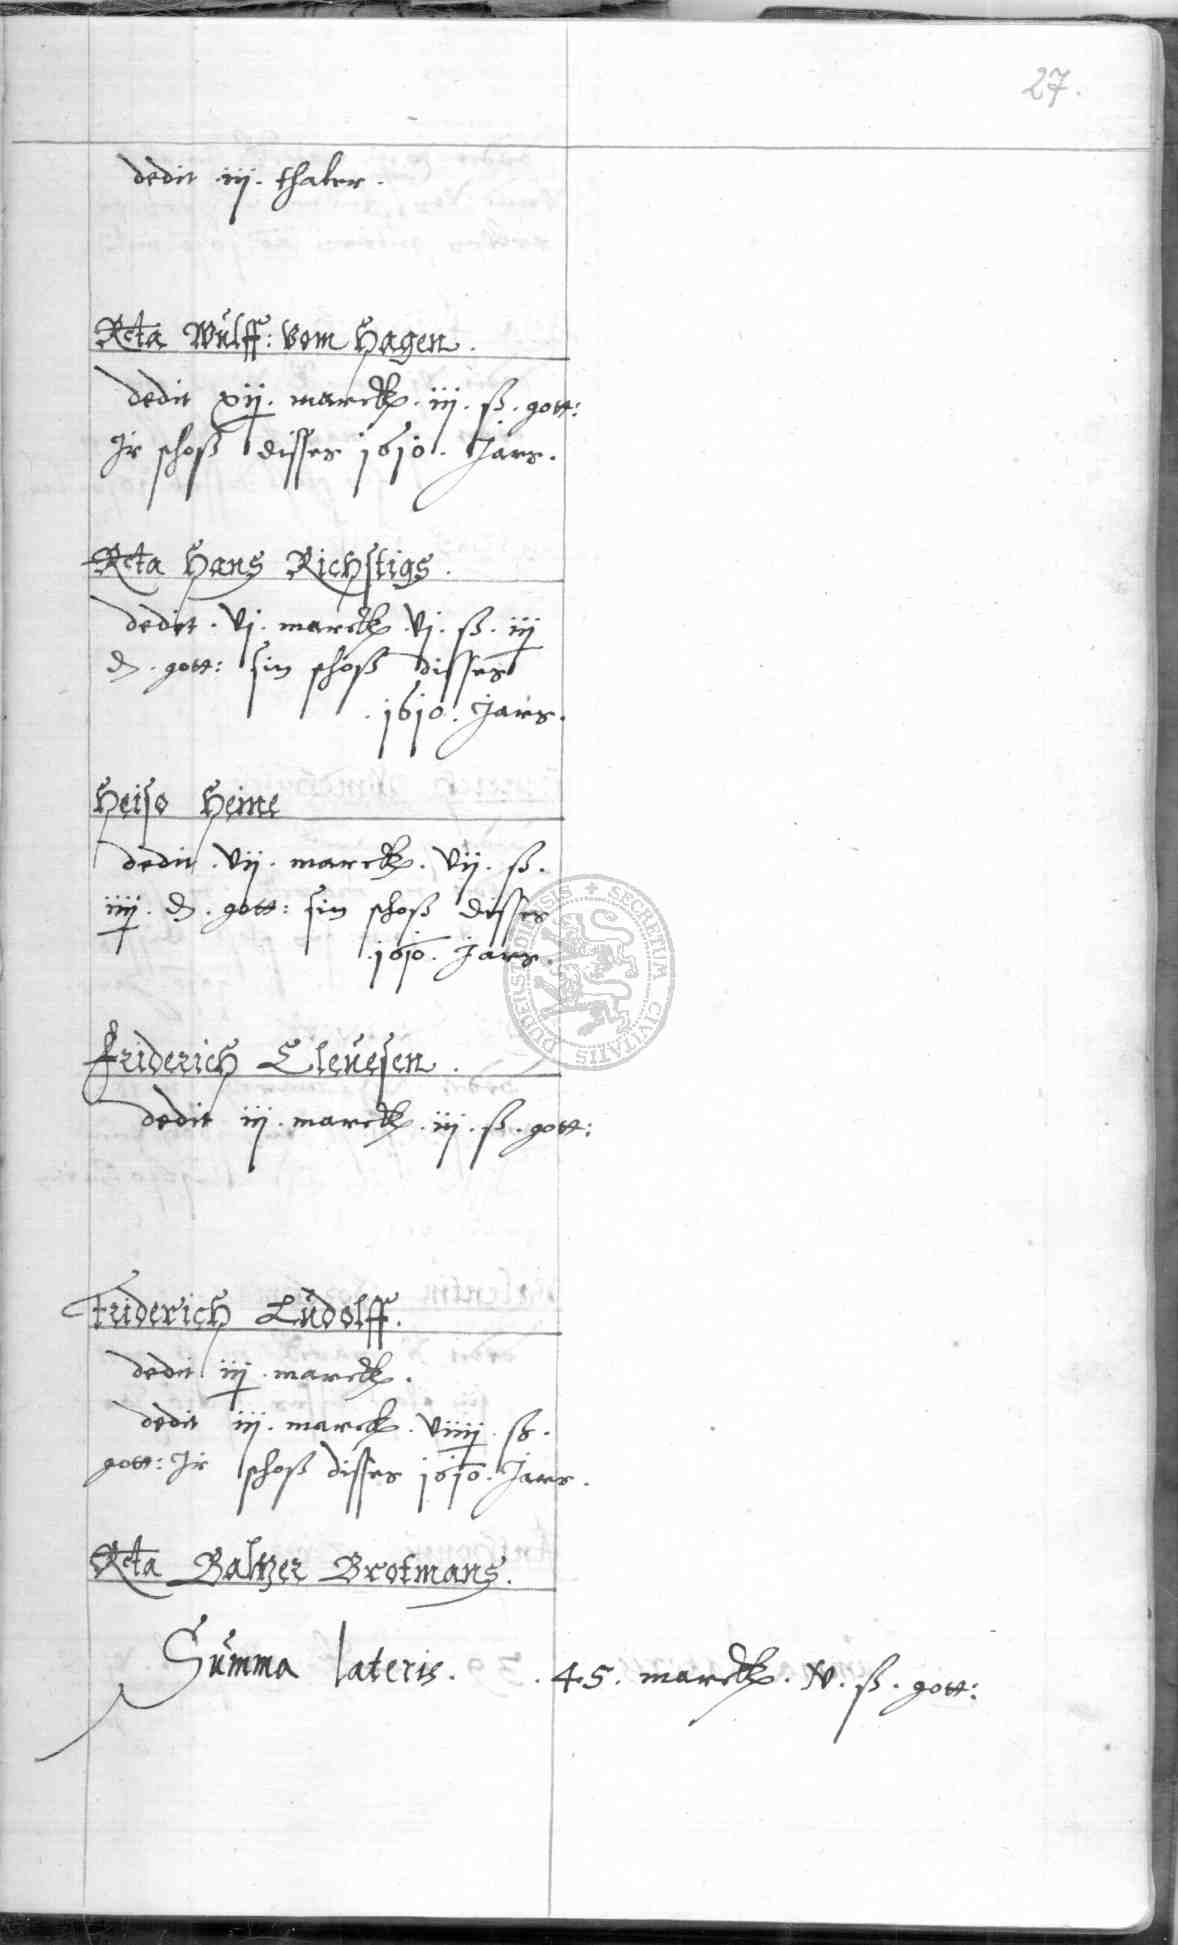 27.
dedit .iij. thaler.
Rcta Wülff: vom Hagen.
dedit xij. marck. iij. ß. gott:
Jr schoß disses 1610. Jars.
Rcta Hans Richstigs.
dedit . vj. marck vj. ß. iij
d. gott: sin schoß disses
.1610. Jars.
Heiso Heine
dedit .vij. marck. vij. ß.
iiij. d. gott: sin schoß disses
.1610. Jars.
Friderich Cleuesen.
dedit iij. marck. iij. ß. gott:
Friderich Lüdolff.
dedit iij. marck.
dedit iij. marck. viiij ß.
gott: Jr schoß disses 1610. Jars.
Rcta Baltzer Brotmans.
Summa lateris. .45. marck. iv. ß. gott:
DUDERSTADIENSIS + SECRETUM CIVITATIS